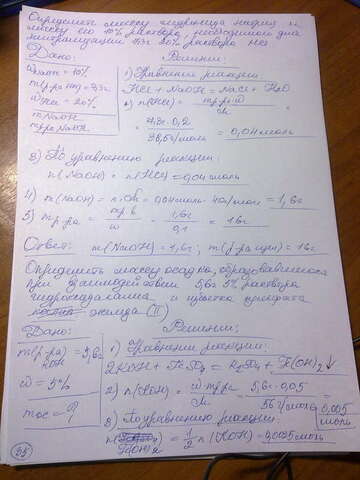 Определить массу гидроксида натрия и
массу его 10% раствора, необходимого для
нейтрализации 7,3г 20% раствора HCl
Дано:
Решение:
ω NaOH = 10%
m(р-ра HCl) = 7,3г
ω HCl = 20%
m NaOH
m р-ра NaOH
1) Уравнение реакции
HCl + NaOH = NaCl + H2O
2) n(HCl) = mр-ра·ω =
7,3г·0,2
36,5г/моль = 0,04моль
3) По уравнению реакции:
n(NaOH) = n(HCl) = 0,04моль
4) m(NaOH) = n·M = 0,04моль·40г/моль = 1,6г
5) m р-ра = mр.в / ω = 1,6г / 0,1 = 16г
Ответ: m(NaOH) = 1,6г; m(р-ра щел) = 16г
Определить массу осадка, образовавшегося
при взаимодействии 5,6г 5% раствора
гидроксида калия и избытка сульфата
железа (II)
Дано:
Решение:
m(р-ра) KOH = 5,6г
ω = 5%
mос = ?
1) Уравнение реакции:
2KOH + FeSO4 = K2SO4 + Fe(OH)2↓
2) n(KOH) = ω·mр-ра / M = 5,6г·0,05 / 56г/моль = 0,005 моль
3) По уравнению реакции:
n(Fe(OH)2) = 1/2 n(KOH) = 0,0025моль
35